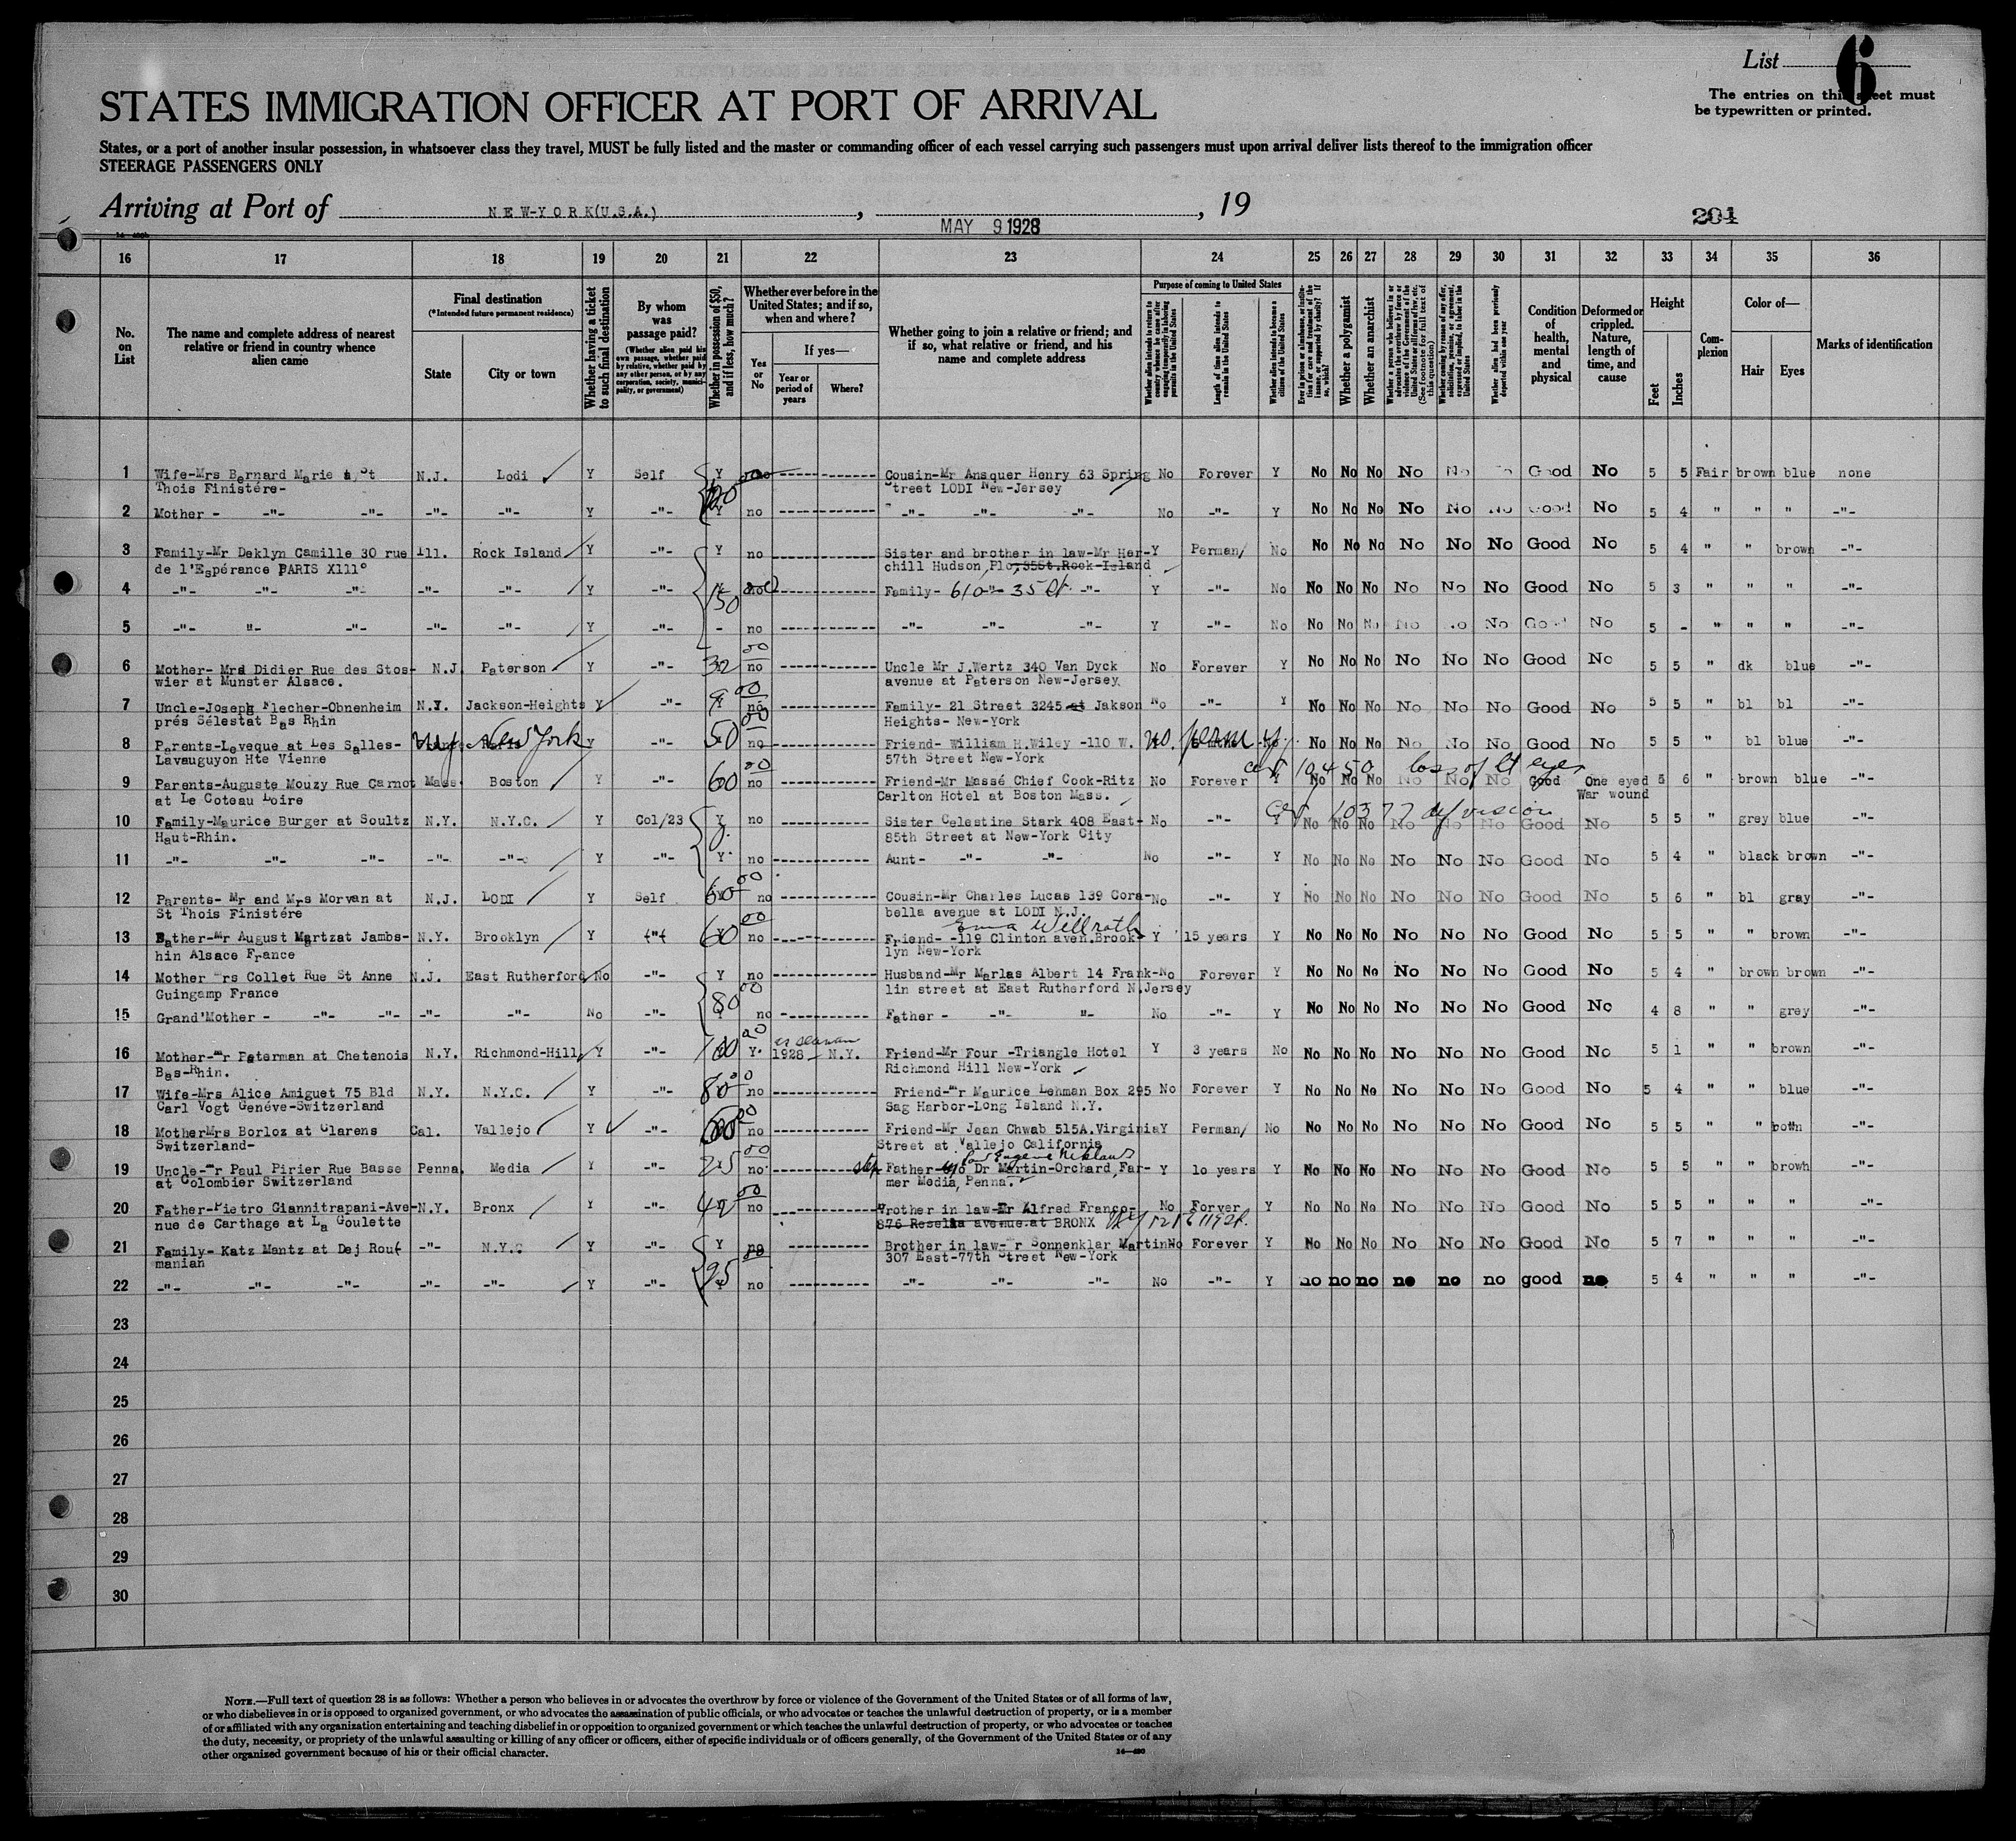 List 6
The entries on this sheet must
be typewritten or printed.
STATES IMMIGRATION OFFICER AT PORT OF ARRIVAL
States, or a port of another insular possession, in whatsoever class they travel, MUST be fully listed and the master or commanding officer of each vessel carrying such passengers must upon arrival deliver lists thereof to the immigration officer
STEERAGE PASSENGERS ONLY
Arriving at Port of NEW-YORK(U.S.A.) , MAY 9 1928 , 19
204
16 17 18 19 20 21 22 23 24 25 26 27 28 29 30 31 32 33 34 35 36
No. on List
The name and complete address of nearest relative or friend in country whence alien came
Final destination
(*Intended future permanent residence)
State
City or town
Whether having a ticket to such final destination
By whom was passage paid?
(Whether alien paid his own passage, whether paid by relative, whether paid by any other person, or by any corporation, society, municipality, or government)
Whether in possession of $50, and if less, how much?
Whether ever before in the United States; and if so, when and where?
Yes or No
If yes—
Year or period of years
Where?
Whether going to join a relative or friend; and if so, what relative or friend, and his name and complete address
Purpose of coming to United States
Whether alien intends to return to country whence he came after engaging temporarily in laboring pursuits in the United States
Length of time alien intends to remain in the United States
Whether alien intends to become a citizen of the United States
Whether a polygamist
Whether an anarchist
Condition of health, mental and physical
Deformed or crippled. Nature, length of time, and cause
Height
Feet
Inches
Complexion
Color of—
Hair
Eyes
Marks of identification
1 Wife-Mrs Bernard Marie N.J. Lodi Y Self Y Cousin-Mr Ansquer Henry 63 Spring No Forever Y No No No No No Good No 5 5 Fair brown blue none
Thois Finistére- Street LODI New-Jersey
2 Mother - -"- -"- -"- -"- Y -"- Y no -"- -"- -"- No -"- Y No No No No No No Good No 5 4 " " " -"-
3 Family-Mr Deklyn Camille 30 rue Ill. Rock Island Y -"- Y no Sister and brother in law-Mr Her- Y Perman/ No No No No No No No Good No 5 4 " " brown -"-
de l'Espérance PARIS X111° chill Hudson, 35St.Rock-Island
4 -"- -"- -"- -"- -"- Y -"- 150 no Family- 610 -"- 35 St -"- Y -"- No No No No No No No Good No 5 3 " " " -"-
5 -"- "- -"- -"- -"- Y -"- - no -"- -"- -"- Y -"- No No No No No No No Good No 5 - " " " -"-
6 Mother- Mrs Didier Rue des Stos- N.J. Paterson Y -"- 32 no Uncle Mr J.Wertz 340 Van Dyck No Forever Y No No No No No No Good No 5 5 " dk blue -"-
wier at Munster Alsace. avenue at Paterson New-Jersey
7 Uncle-Joseph Flecher-Obnenheim N.Y. Jackson-Heights Y -"- no Family- 21 Street 3245 at Jakson No -"- Y No No No No No No Good No 5 5 " bl bl -"-
prés Sélestat Bas Rhin Heights- New-York
8 Parents-Leveque at Les Salles- NY New York Y -"- 50 no Friend- William H.Wiley -110 W. no perm y No No No No No No Good No 5 5 " bl blue -"-
Lavauguyon Hte Vienne 57th Street New-York
9 Parents-Auguste Mouzy Rue Carnot Mass Boston Y -"- 60 no Friend-Mr Massé Chief Cook-Ritz No Forever Y No No No No No No Good One eyed 5 6 " brown blue -"-
at Le Coteau Loire Carlton Hotel at Boston Mass. War wound
10 Family-Maurice Burger at Soultz N.Y. N.Y.C. Y Col/23 Y no Sister Celestine Stark 408 East- No -"- Y No No No No No No Good No 5 5 " grey blue -"-
Haut-Rhin. 85th Street at New-York City
11 -"- -"- -"- -"- -"- Y -"- Y no Aunt- -"- -"- No -"- Y No No No No No No Good No 5 4 " black brown -"-
12 Parents- Mr and Mrs Morvan at N.J. LODI Y Self 60 no Cousin-Mr Charles Lucas 139 Cora- No -"- Y No No No No No No Good No 5 6 " bl gray -"-
St Thois Finistére bella avenue at LODI N.J.
13 Father-Mr August Martzat Jambs- N.Y. Brooklyn Y -"- 60 no Friend- -119 Clinton aven.Brook- Y 15 years Y No No No No No No Good No 5 5 " " brown -"-
hin Alsace France lyn New-York
14 Mother Mrs Collet Rue St Anne N.J. East Rutherford No -"- Y no Husband-Mr Marlas Albert 14 Frank- No Forever Y No No No No No No Good No 5 4 " brown brown -"-
Guingamp France lin street at East Rutherford N.Jersey
15 Grand'Mother - -"- -"- -"- -"- No -"- 80 no Father - -"- "- No -"- Y No No No No No No Good No 4 8 " " grey -"-
16 Mother-mr Peterman at Chetenois N.Y. Richmond-Hill Y -"- 100 Y. 1928 N.Y. Friend-Mr Four -Triangle Hotel Y 3 years No No No No No No No Good No 5 1 " " brown -"-
Bas-Rhin. Richmond Hill New-York
17 Wife-Mrs Alice Amiguet 75 Bld N.Y. N.Y.C. Y -"- 80 no Friend-mr Maurice Lehman Box 295 No Forever Y No No No No No No Good No 5 4 " " blue -"-
Carl Vogt Genéve-Switzerland Sag Harbor-Long Island N.Y.
18 MotherMrs Borloz at Clarens Cal. Vallejo Y -"- no Friend-Mr Jean Chwab 515A.Virginia Y Perman/ No No No No No No No Good No 5 5 " " -"-
Switzerland- Street at Vallejo California
19 Uncle-mr Paul Pirier Rue Basse Penna Media Y -"- 25 no step Father c/o Dr Martin-Orchard, Far- Y 10 years Y No No No No No No Good No 5 5 " " brown -"-
at Colombier Switzerland mer Media, Penna.
20 Father-Pietro Giannitrapani-Ave- N.Y. Bronx Y -"- 40 no Brother in law-Mr Alfred Franco- No Forver Y No No No No No No Good No 5 5 " " " -"-
nue de Carthage at La Goulette 876 avenue.at BRONX
21 Family- Katz Mantz at Dej Rou -"- N.Y.C Y -"- Y no Brother in law- r Sonnenklar Martin No Forever Y No No No No No No Good No 5 7 " " " -"-
manian 307 East-77th Street New-York
22 -"- -"- -"- -"- -"- Y -"- 95 no -"- -"- -"- No -"- Y no no no no no no good no 5 4 " " " -"-
23
24
25
26
27
28
29
30
NOTE.—Full text of question 28 is as follows: Whether a person who believes in or advocates the overthrow by force or violence of the Government of the United States or of all forms of law,
or who disbelieves in or is opposed to organized government, or who advocates the assassination of public officials, or who advocates or teaches the unlawful destruction of property, or is a member
of or affiliated with any organization entertaining and teaching disbelief in or opposition to organized government or which teaches the unlawful destruction of property, or who advocates or teaches
the duty, necessity, or propriety of the unlawful assaulting or killing of any officer or officers, either of specific individuals or of officers generally, of the Government of the United States or of any
other organized government because of his or their official character.